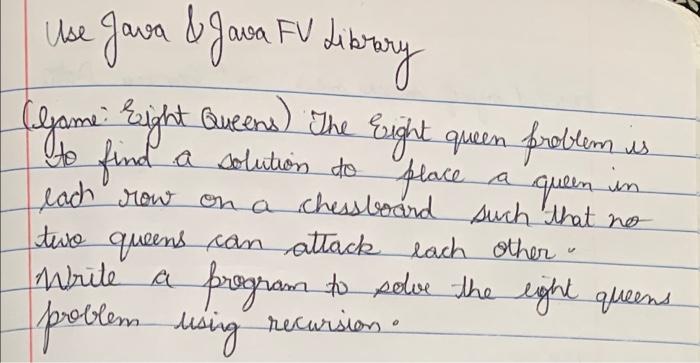 Use Java & Java FV Library
(Game: Eight Queens) The Eight queen problem is
to find a solution to place a queen in
each row on a chessboard such that no
two queens can attack each other.
Write a program to solve the eight queens
problem using recursion.